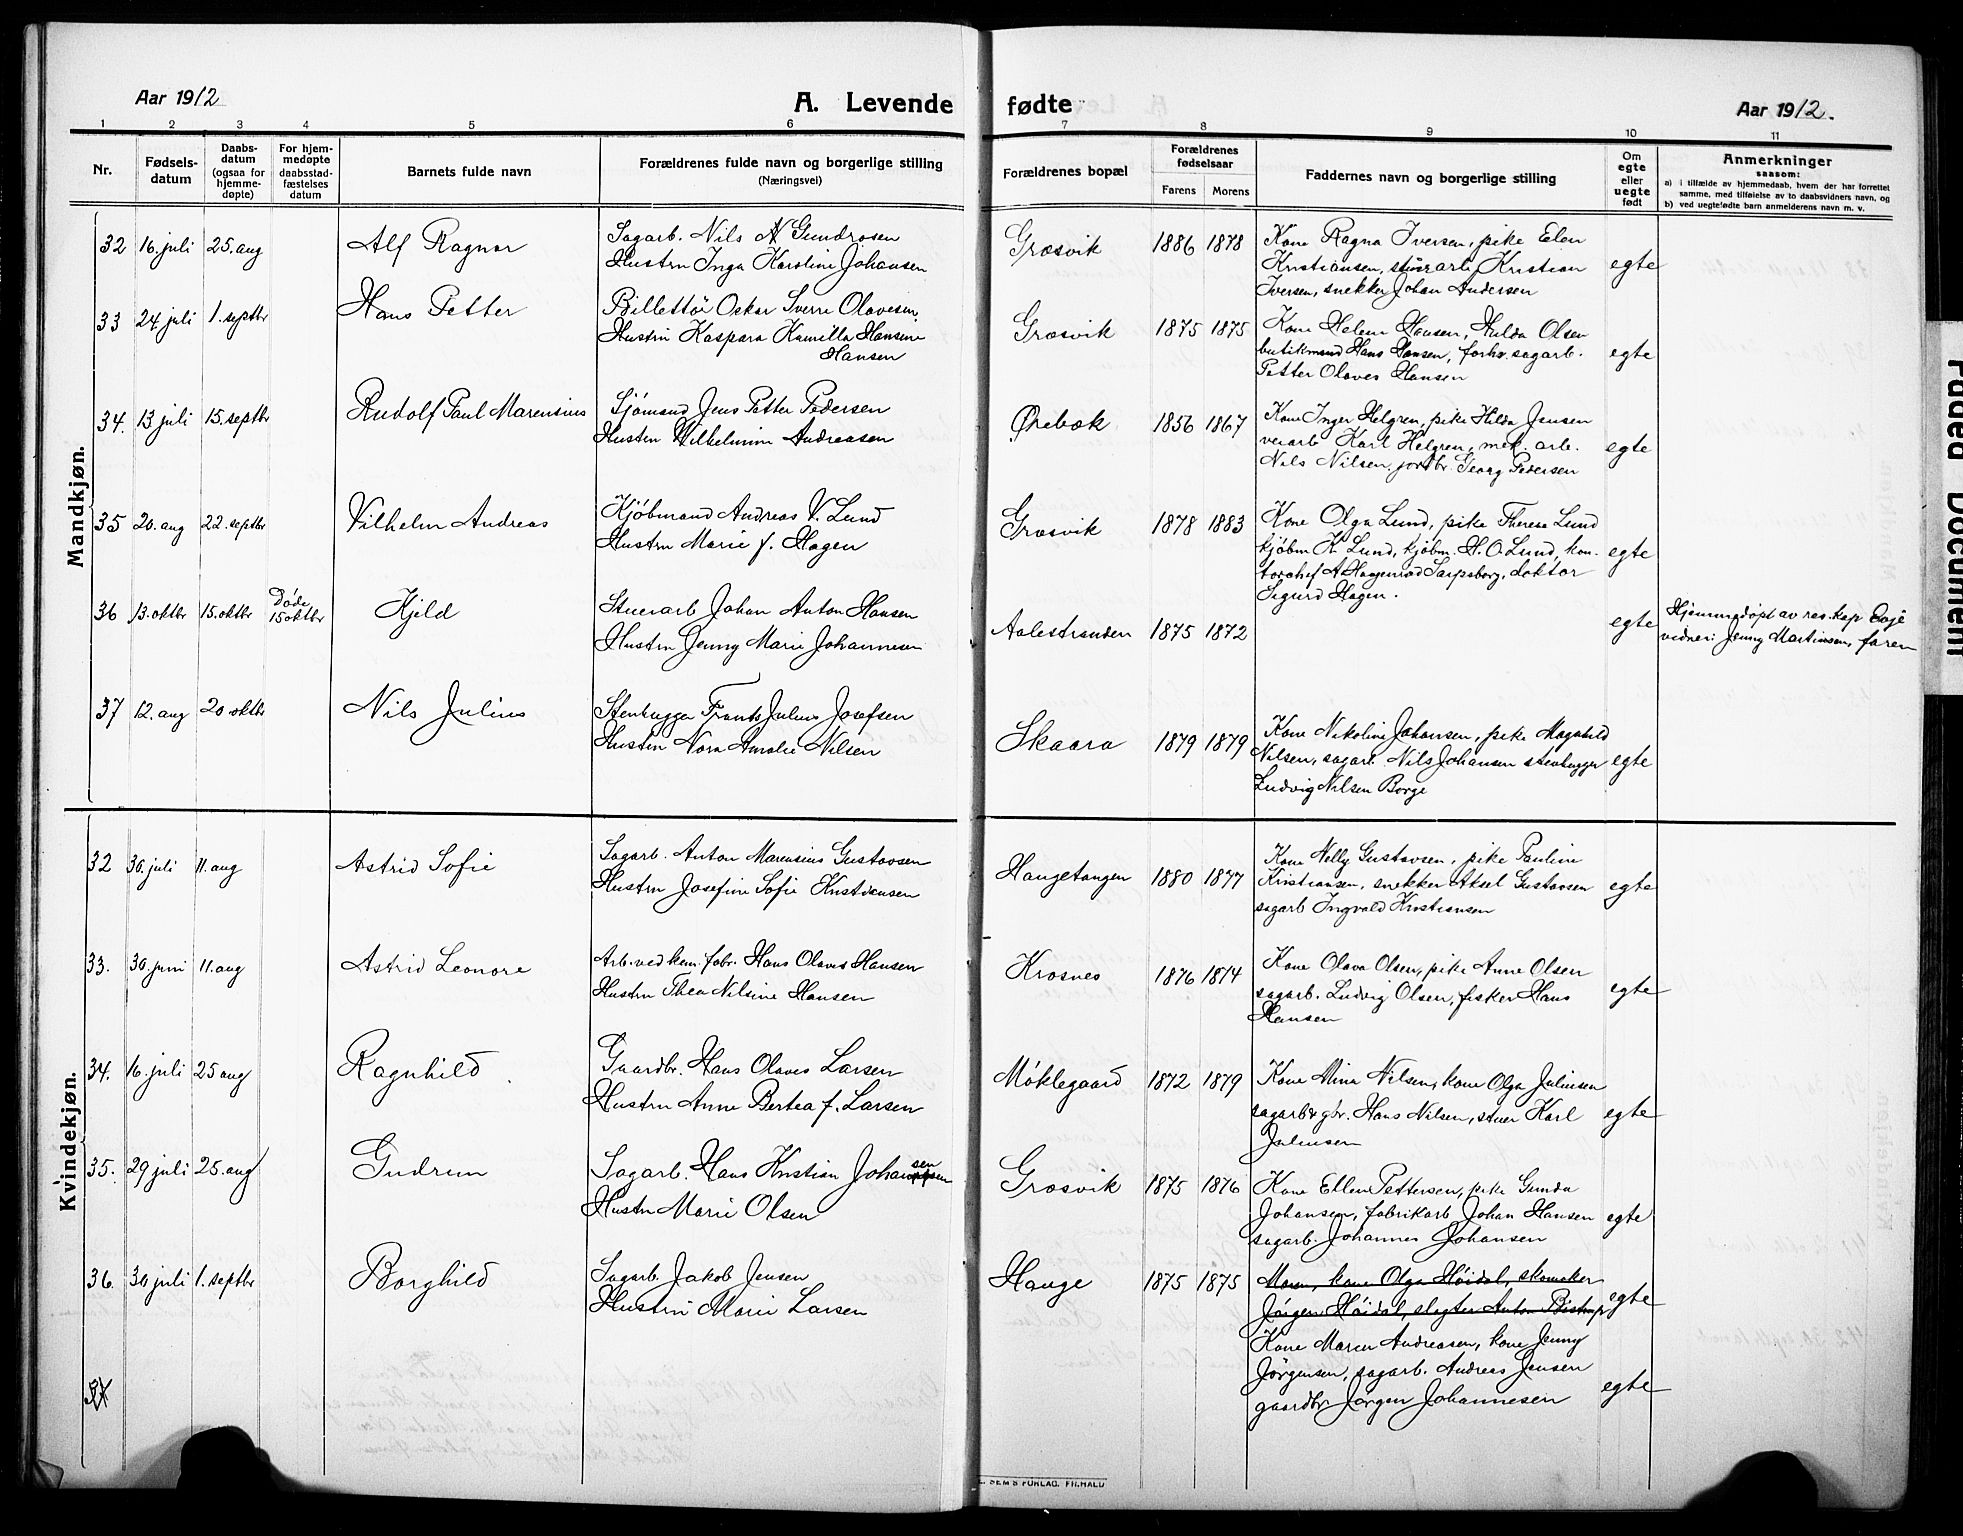 Aar 1912
A. Levende fødte
Aar 1912.
1 2 3 4 5 6 7 8 9 10 11
Nr.
Fødsels-
datum
Daabs-
datum
(ogsaa for
hjemme-
døpte)
For hjem-
medøpte
daabsstad-
fæstelses
datum
Barnets fulde navn
Forældrenes fulde navn og borgerlige stilling
(Næringsvei)
Forældrenes bopæl
Forældrenes
fødselsaar
Farens Morens
Faddernes navn og borgerlige stilling
Om
egte
eller
uegte
født
Anmerkninger
saasom:
a) i tilfælde av hjemmedaab, hvem der har forrettet
samme, med tilføielse av to daabsvidners navn, og
b) ved uegtefødte barn anmelderens navn m. v.
Mandkjøn.
32 16. juli 25. aug Alf Ragnar
Sagarb. Nils N Gundrosen
Hustru Inga Karoline Johansen
Græsvik 1886 1878
Kone Ragna Iversen, pike Elen
Kristiansen, stuerarb. Kristian
Iversen, snekker Johan Andersen
egte
33 24. juli 1. septbr Hans Petter
Billettör Oskar Sverre Olavesen
Hustru Kaspara Kamilla Hansine
Hansen
Græsvik 1875 1875
Kone Helene Hansen, Hulda Olsen
butikmand Hans Hansen, forhv. sagarb.
Petter Olaves Hansen
egte
34. 13 juli 15. septbr Rudolf Paul Marensius
Sjømand Jens Petter Pedersen
Hustru Wilhelmine Andreasen
Ørebæk 1856 1867
Kone Inger Helgren, pike Hilda Jensen
veiarb Karl Helgren, mek. arb.
Nils Nilsen, jordbr. Georg Pedersen
egte
35 20. aug 22. septbr Vilhelm Andreas
Kjøbmand Andreas V. Lund
Hustru Marie f. Hagen
Græsvik 1878 1883
Kone Olga Lund, pike Therese Lund
kjøbm K. Lund, kjøbm. H. O. Lund, kon-
torchef A Haugerød Sarpsborg, doktor
Sigurd Hagen.
egte
36 13. oktbr 15. oktbr Døde
15 oktbr Kjeld
Stuerarb Johan Anton Hansen
Hustru Jenny Marie Johannesen
Aalestranden 1875 1872
egte
Hjemmedøpt av res. kap Evje
vidner: Jenny Martinsen, faren
37 12. aug 20 oktbr Nils Julius
Stenhugger Frants Julius Josefsen
Hustru Nora Amalie Nilsen
Skaara 1879 1879
Kone Nikoline Johansen, pike Magnhild
Nilsen, sagarb. Nils Johansen stenhugger
Ludvig Nilsen Borge
egte
Kvindekjøn.
32 30. juli 11. aug Astrid Sofie
Sagarb. Anton Marensius Gustavsen
Hustru Josefine Sofie Kristiansen
Haugetangen 1880 1877
Kone Nelly Gustavsen, pike Pauline
Kristiansen, snekker Aksel Gustavsen
sagarb Ingvald Kristiansen
egte
33. 30. juni 11. aug Astrid Leonore
Arb. ved kem. fabr. Hans Olaves Hansen
Hustru Thea Nilsine Hansen
Krosnes 1876 1874
Kone Olava Olsen, pike Anne Olsen
sagarb. Ludvig Olsen, fisker Hans
Hansen
egte
34. 16. juli 25 aug Ragnhild
Gaardbr. Hans Olaves Larsen
Hustru Anne Bertea f. Larsen
Møklegaard 1872 1879
Kone Mina Nilsen, kone Olga Juliusen
sagarb & gbr. Hans Nilsen, stuer Karl
Juliusen
egte
35. 29 juli 25. aug Gudrun
Sagarb. Hans Kristian Johansen
Hustru Marie Olsen
Græsvik 1875 1876
Kone Ellen Pettersen, pike Gunda
Johansen, fabrikarb Johan Hansen
sagarb. Johannes Johansen
egte
36. 30 juli 1. septbr Borghild
Sagarb. Jakob Jensen
Hustru Marie Larsen
Hauge 1875 1875
Moren, kone Olga Höidal, skomaker
Jörgen Höidal, slagter Anton Bistrup
egte
Kone Maren Andreasen, kone Jenny
Jørgensen, sagarb. Andreas Jensen
gaardbr Jørgen Johannesen
egte
37
SEM'S FORLAG. FR.HALD
Faded Document